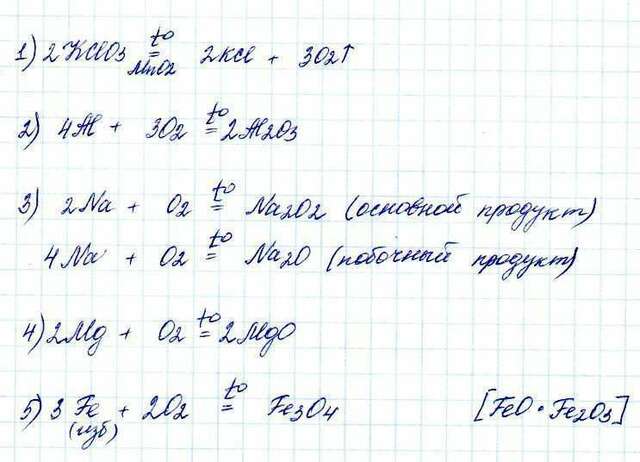 1) 2KClO3 t° = MnO2 2KCl + 3O2↑
2) 4Al + 3O2 t° = 2Al2O3
3) 2Na + O2 t° = Na2O2 (основной продукт)
4Na + O2 t° = Na2O (побочный продукт)
4) 2Mg + O2 t° = 2MgO
5) 3Fe + 2O2 t° = Fe3O4 [FeO • Fe2O3]
(изб)